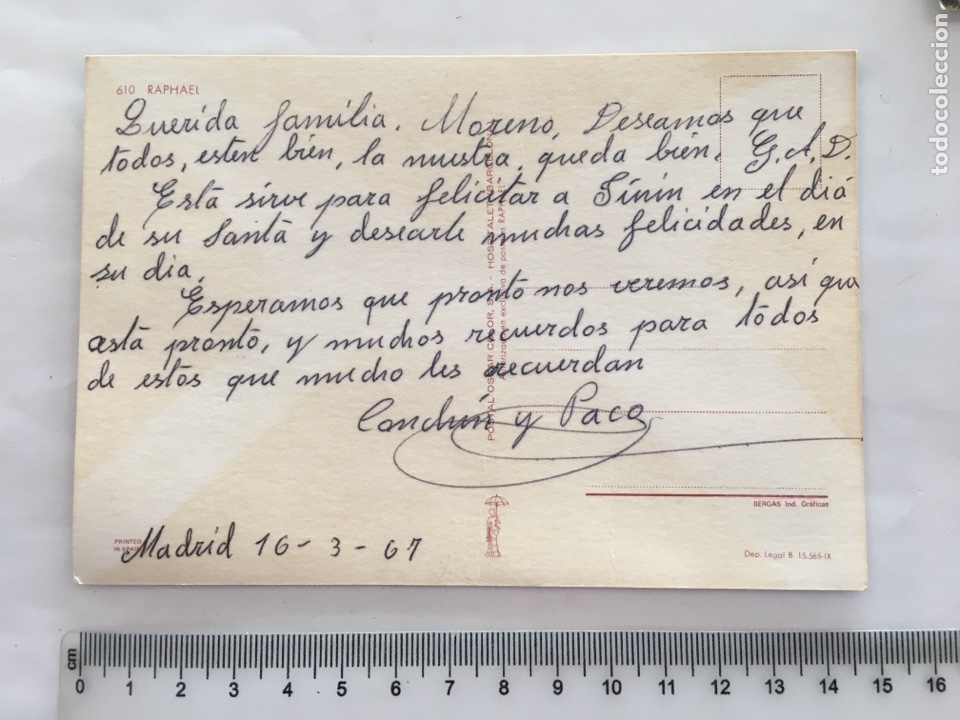 610 RAPHAEL
Querida família. Moreno, Deseamos que
todos, esten bién, la nuestra, queda bién. G.A.D.
Está sirve para felicitar a Finin en el diá
de su Santa y desearle muchas felicidades, en
su dia.
Esperamos que pronto nos veremos, así que
asta pronto, y muchos recuerdos para todos
de estos que mucho les recuerdan
Conchín y Paco
Madrid 16-3-67
PRINTED
IN SPAIN
POSTAL OSCAR COLOR, S.A. - HOSPITALET (BARCELONA)
en exclusiva de postales RAPHAEL
BERGAS Ind. Gráficas
Dep. Legal B. 15.565-IX
todocoleccion
cm
0 1 2 3 4 5 6 7 8 9 10 11 12 13 14 15 16